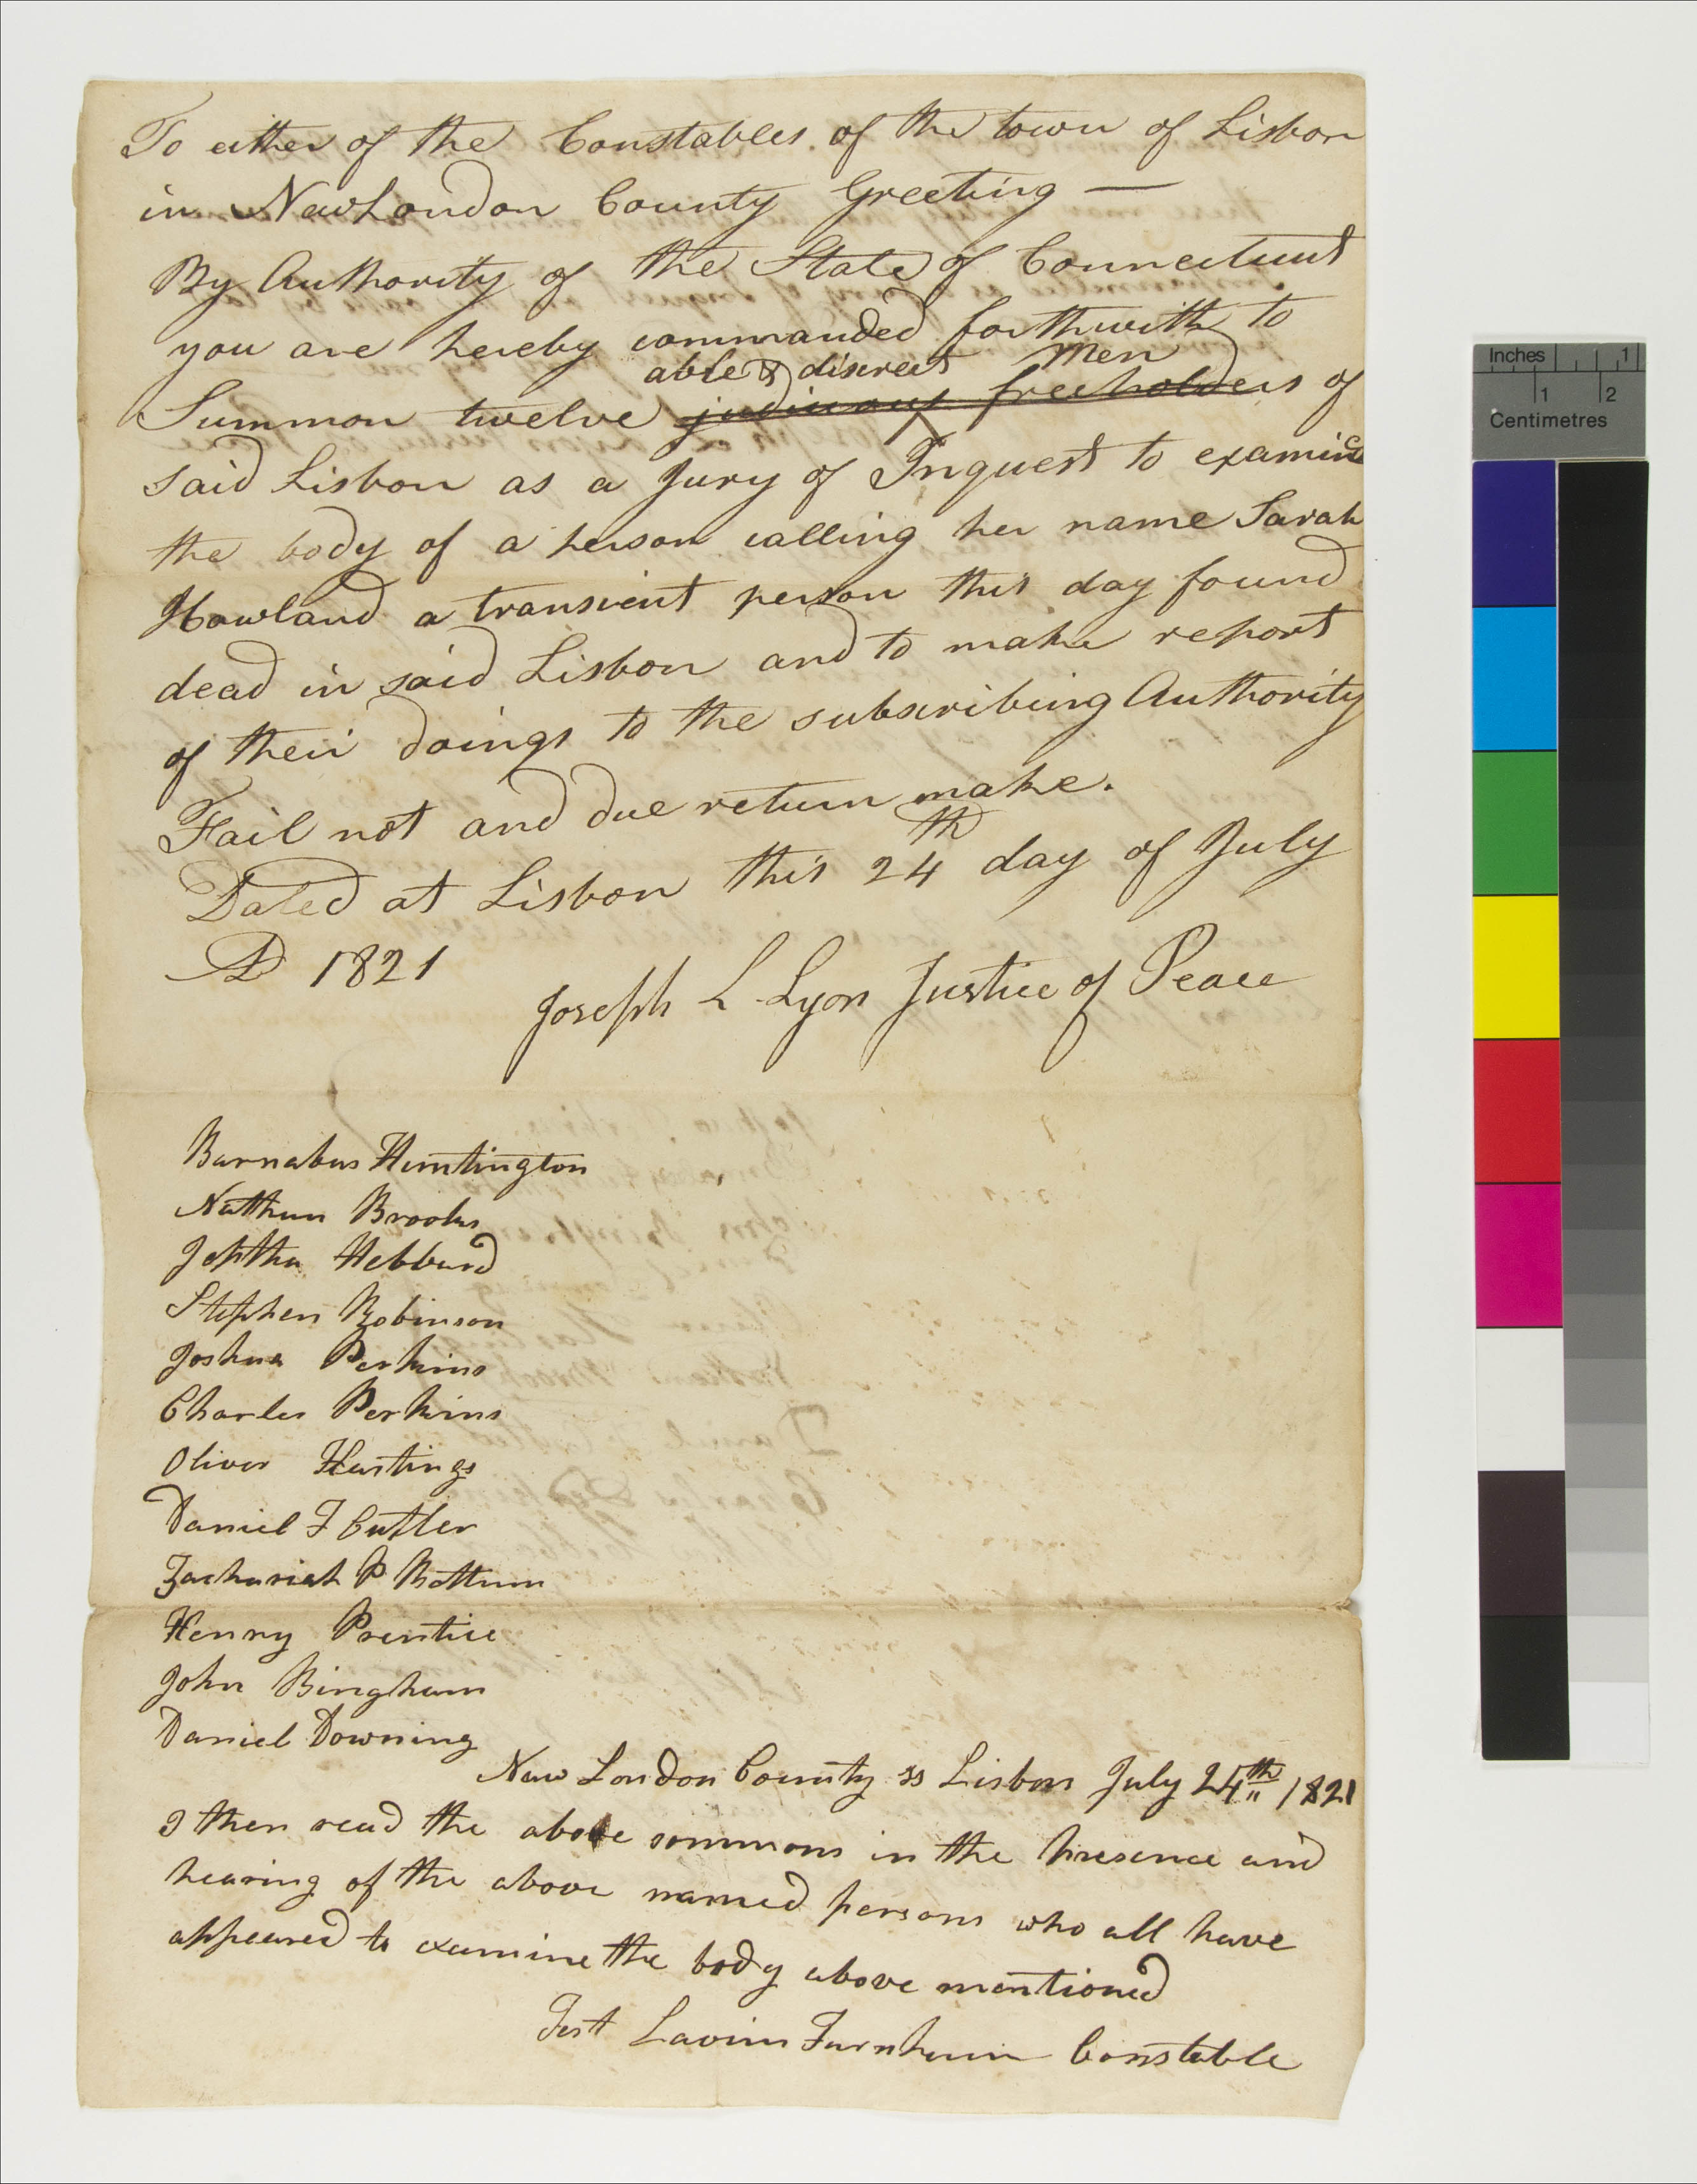 To either of the Constables of the town of Lisbon
in NewLondon County Greeting —
By Authority of the State of Connecticut
you are hereby commanded forthwith to
able & discreet Men
Summon twelve judicious freeholders of
said Lisbon as a Jury of Inquest to examine
the body of a person calling her name Sarah
Howland a transient person this day found
dead in said Lisbon and to make report
of their doings to the subscribing Authority
Fail not and due return make.
Dated at Lisbon this 24th day of July
AD 1821
Joseph L Lyon Justice of Peace
Barnabus Huntington
Nathan Brooks
Jeptha Hebbard
Stephen Robinson
Joshua Perkins
Charles Perkins
Oliver Hastings
Daniel F Cutler
Zachariah P Bottum
Henry Prentice
John Bingham
Daniel Downing
New London County ss Lisbon July 24th 1821
I then read the above sommons in the presence and
hearing of the above named persons who all have
appeared to examine the body above mentioned
Test Farnham Constable
Inches 1
1 2
Centimetres